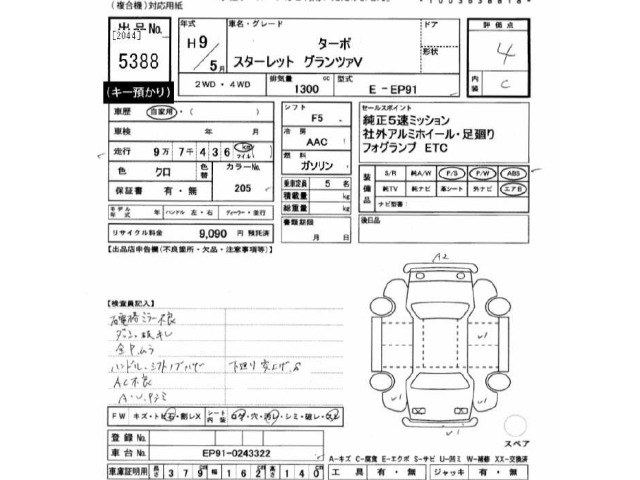 (複合機)対応用紙
出品No.
[2044]
5388
(キー預かり)
年式 H9/5月
車名・グレード
ターボ
スターレット グランツァV
ドア
形状
評価点
4
内装 C
2WD・4WD 排気量 1300 cc 型式 E-EP91
車歴 自家用・( )
車検 年 月
走行 9万7千436 km マイル ( )
色 クロ 色替 カラーNo. 205
保証書 有・無
モデル年式 年 ハンドル 左・右 ディーラー・並行
リサイクル料金 9,090 円 預託済
シフト F5
冷房 AAC
燃料 ガソリン
乗車定員 5 名
積載量 kg
総重量 kg
書類期限
月 日
セールスポイント
純正5速ミッション
社外アルミホイール・足廻り
フォグランプ ETC
装備品
S/R 純A/W P/S P/W ABS
純TV 純ナビ 革シート 外ナビ エアB
ナビ型番:
後日品
【出品店申告欄(不良箇所・欠品・注意事項等)】
【検査員記入】
ハンドル・シフトノブ
A/C不良
FW キズ・トビ石・割レX シート内装 コゲ・穴・汚レ・シミ・破レ・スレ
A2
スペア
登録No.
車台No. EP91-0243322
A-キズ C-腐食 E-エクボ S-サビ U-凹ミ W-補修 XX-交換済
車庫証明用 長さ 379 cm 幅 162 cm 高さ 140 cm 工具 有・無 ジャッキ 有・無